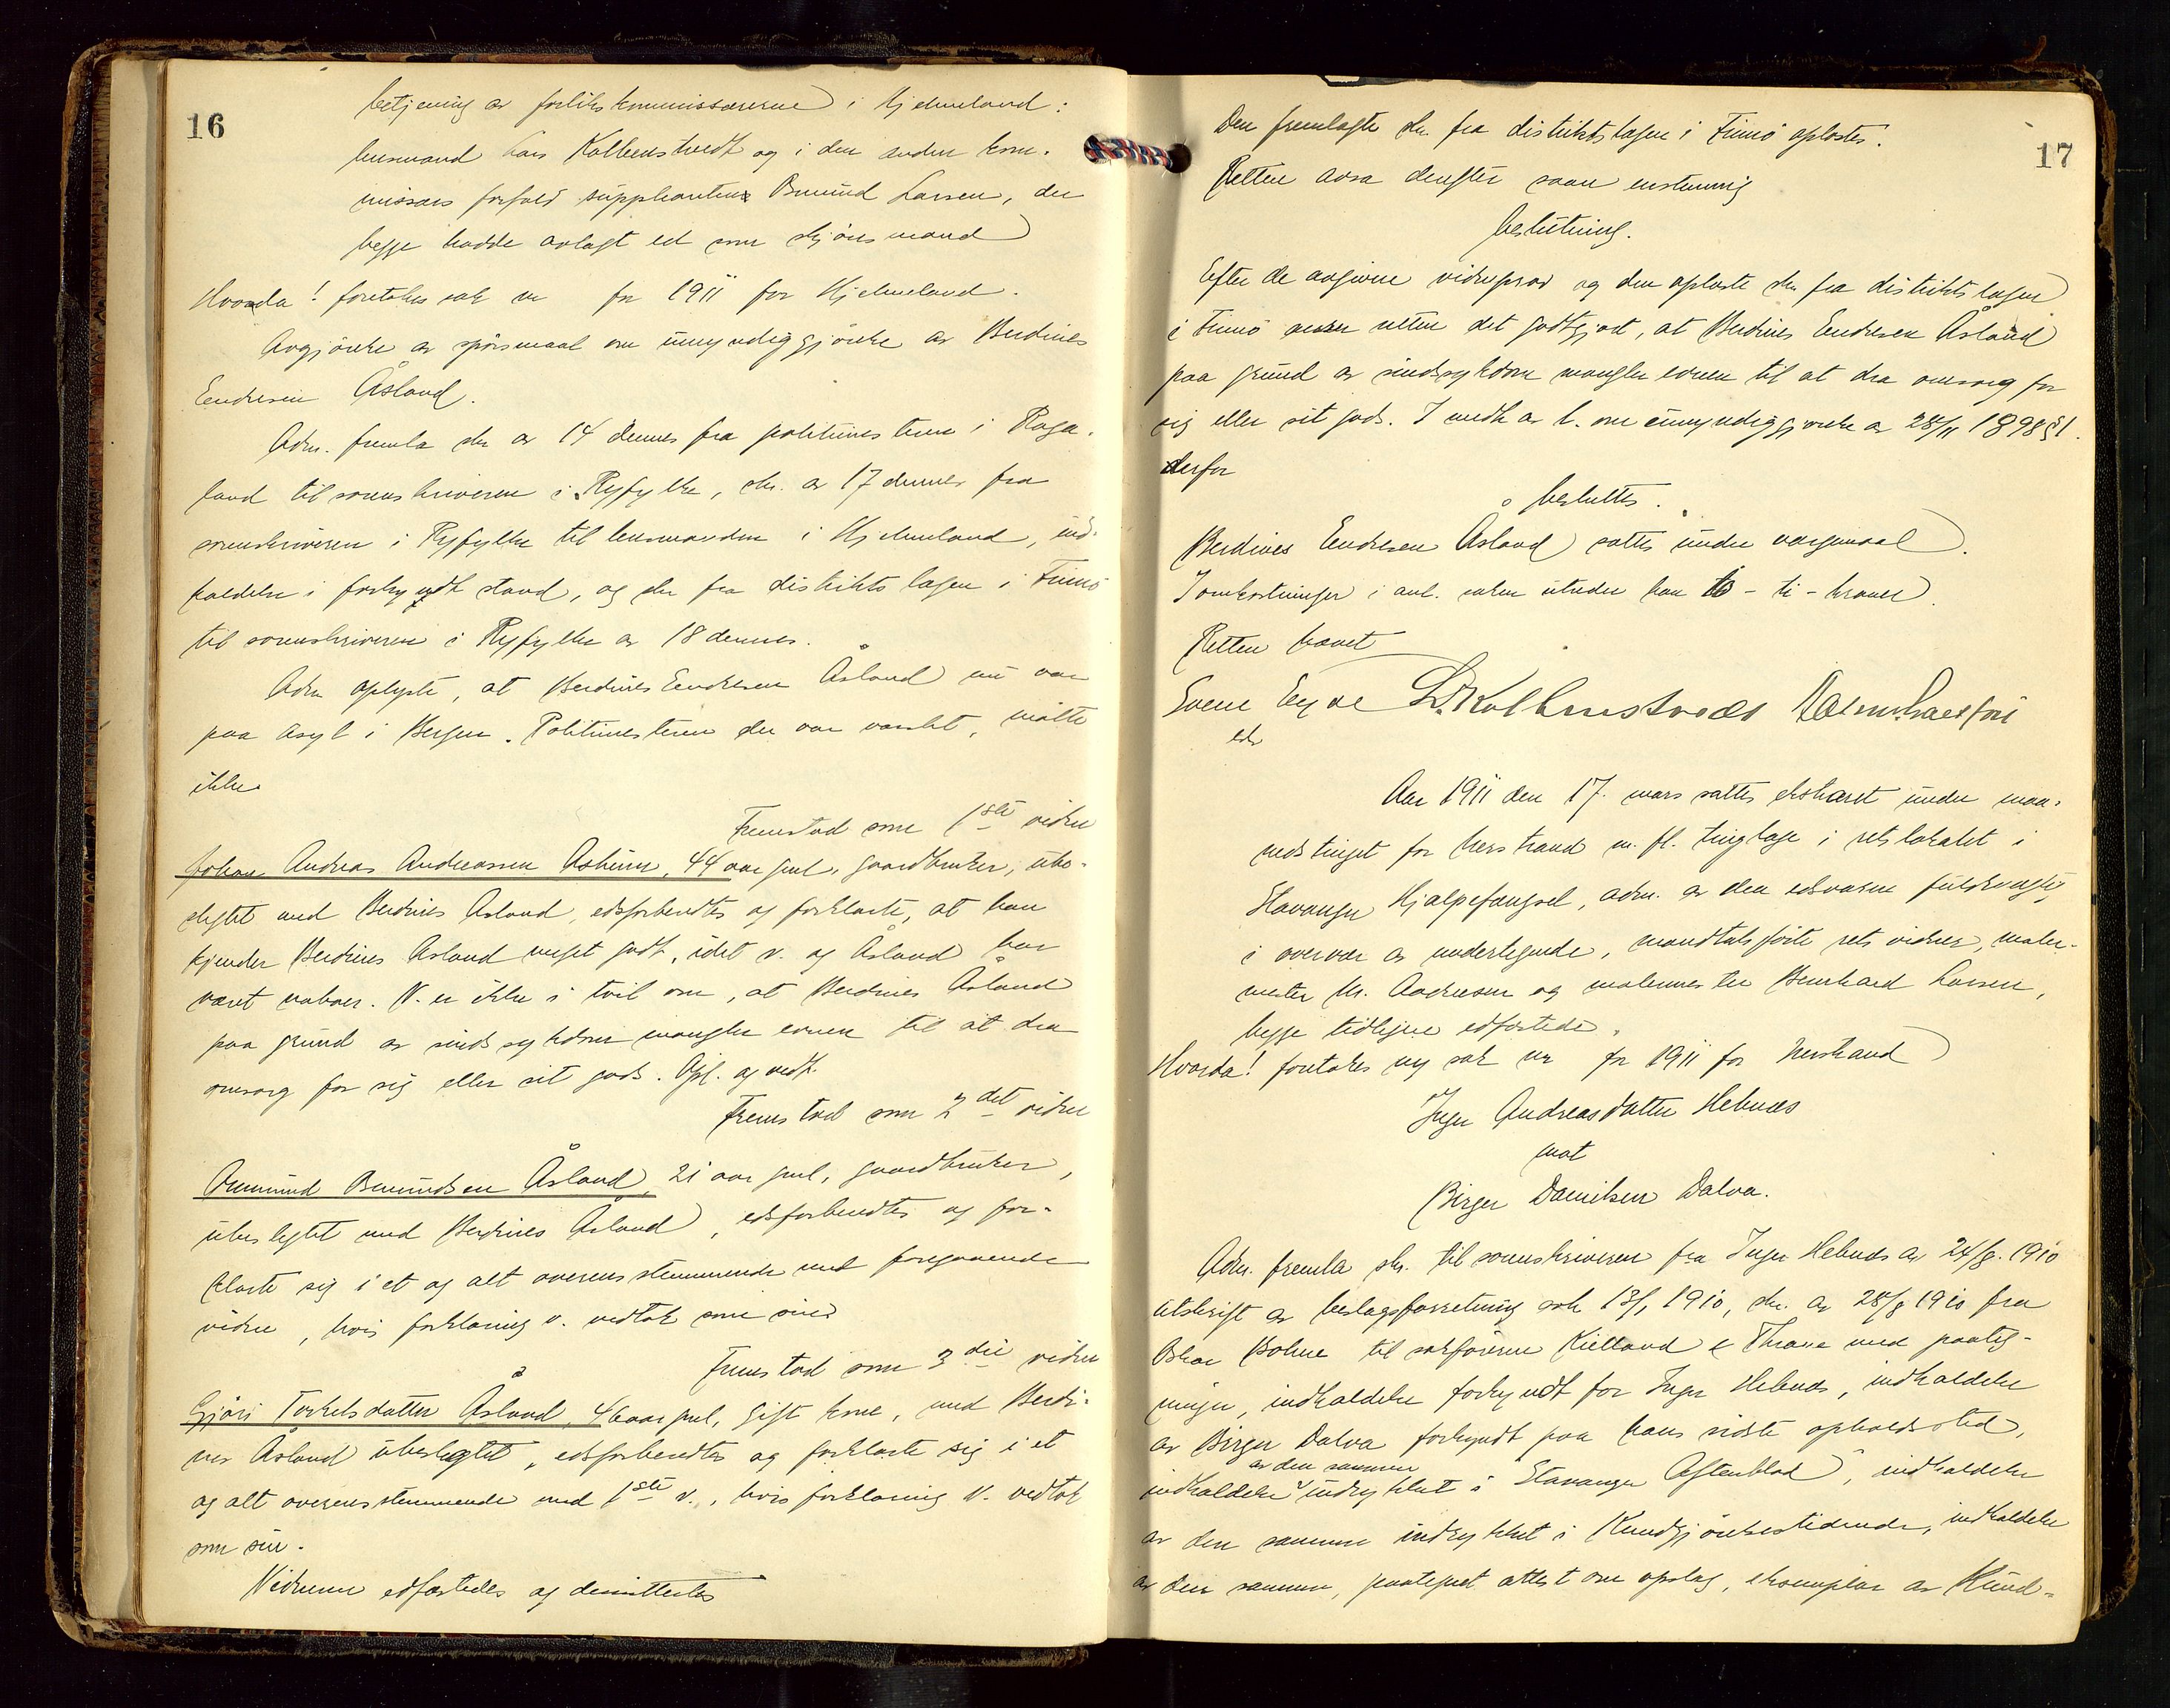 16
betjening av forlikskommissærerne i Hjelmeland:
lensmand Lars Kolbenstvedt og i den anden kom-
missærs forfald suppleanten Omund Larsen, der
begge hadde avlagt ed som skjönsmænd
Hvorda! foretokes sak nr for 1911 for Hjelmeland.
Avgjörelse av spörsmaal om umyndiggjörelse av Berdines
Endresen Åsland.
Adm. fremla skr av 14 dennes fra politimesteren i Roga-
land til sorenskriveren i Ryfylke, skr. av 17 dennes fra
sorenskriveren i Ryfylke til lensmanden i Hjelmeland, ind-
kaldelse i forkyndt stand, og skr fra distriktslægen i Finnö
til sorenskriveren i Ryfylke av 18 dennes.
Adm oplyste, at Berdines Endresen Åsland nu var
paa asyl i Bergen. Politimesteren der var varslet, mötte
ikke.
Fremstod som 1ste vidne
Johan Andreas Andreassen Asheim, 44 aar gml, gaardbruker, ube-
slegtet med Berdines Åsland, edsforberedtes og forklarte, at han
kjender Berdines Åsland meget godt, idet v. og Åsland har
været naboer. V. er ikke i tvil om, at Berdines Åsland
paa grund av sindssykdom mangler evnen til at dra
omsorg for sig eller sit gods. Opl. og vedt.
Fremstod som 2det vidne
Ommund Omundsen Åsland, 21 aar gml, gaardbruker,
ubeslegtet med Berdines Åsland, edsforberedtes og for-
klarte sig i et og alt overensstemmende med foregaaende
vidne, hvis forklaring v. vedtok som sin
Fremstod som 3die vidne
Gjöri Torkelsdatter Åsland, 46 aar gml, gift kone, med Berdi-
nes Åsland ubeslegtet, edsforberedtes og forklarte sig i et
og alt overensstemmende med 1ste v., hvis forklaring v. vedtok
som sin.
Vidnerne edfæstedes og demitteres
17
Den fremlagte skr. fra distriktslægen i Finnö oplæstes.
Retten avsa derefter saan enstemmig
beslutning.
Efter de avgivne vidneprov og den oplæste skr fra distriktslægen
i Finnö anser retten det godtgjort, at Berdines Endresen Åsland
paa grund av sindssykdom mangler evnen til at dra omsorg for
sig eller sit gods. I medh av l. om umyndiggjörelse av 28/11 1898 § 1.
derfor
besluttes.
Berdines Endresen Åsland sættes under vergemaal.
I omkostninger i anl. saken utreder han 10 - ti - kroner.
Retten hævet
Svein L. Kolbenstvedt
eds
Aar 1911 den 17. mars sattes ekstraret under maa-
nedstinget for Nerstrand m. fl. tinglage i retslokalet i
Stavanger Hjælpefængsel, adm. av den edsvorne fuldmægtig
i overvær av undertegnede, mandtalsförte retsvidner, maler-
mester M. Andresen og malermester Bernhard Larsen,
begge tidligere edfæstede.
Hvorda! foretokes ny sak nr for 1911 for Nerstrand
Inger Andreasdatter Hebnes
mot
Birger Danielsen Dalva.
Adm. fremla skr. til sorenskriveren fra Inger Hebnes av 24/8. 1910
utskrift av beslagsforretning avh 13/1 1910, skr. av 28/8 1910 fra
til sakförerne Kielland & Thrane med paateg-
ninger, indkaldelse forkyndt for Inger Hebnes, indkaldelse
av Birger Dalva forkyndt paa hans sidste opholdssted,
indkaldelse av den samme indrykket i "Stavanger Aftenblad", indkaldelse
av den samme indrykket i Kundgjörelsestidende, indkaldelse
av den samme, paategnet attest om opslag, eksemplar av Kund-